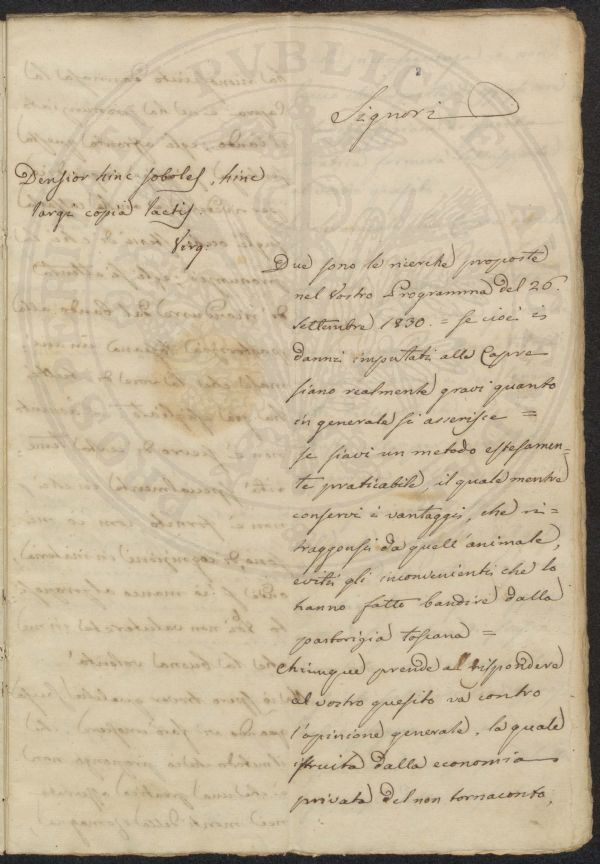 2
Signori
Densior hinc soboles, hinc
largi copia lactis
Virg:
Due sono le ricerche proposte
nel Vostro Programma del 26.
settembre 1830. = se cioè i
danni imputati alle Capre
siano realmente gravi quanto
in generale si asserisce =
se siavi un metodo estesamen=
te praticabile, il quale mentre
conservi i vantaggi, che ri=
traggonsi da quell'animale,
eviti gli inconvenienti che lo
hanno fatto bandire dalla
pastorizia toscana =
Chiunque prende a rispondere
al vostro quesito va contro
l'opinione generale, la quale
istruita dalla economia
privata del non tornaconto,